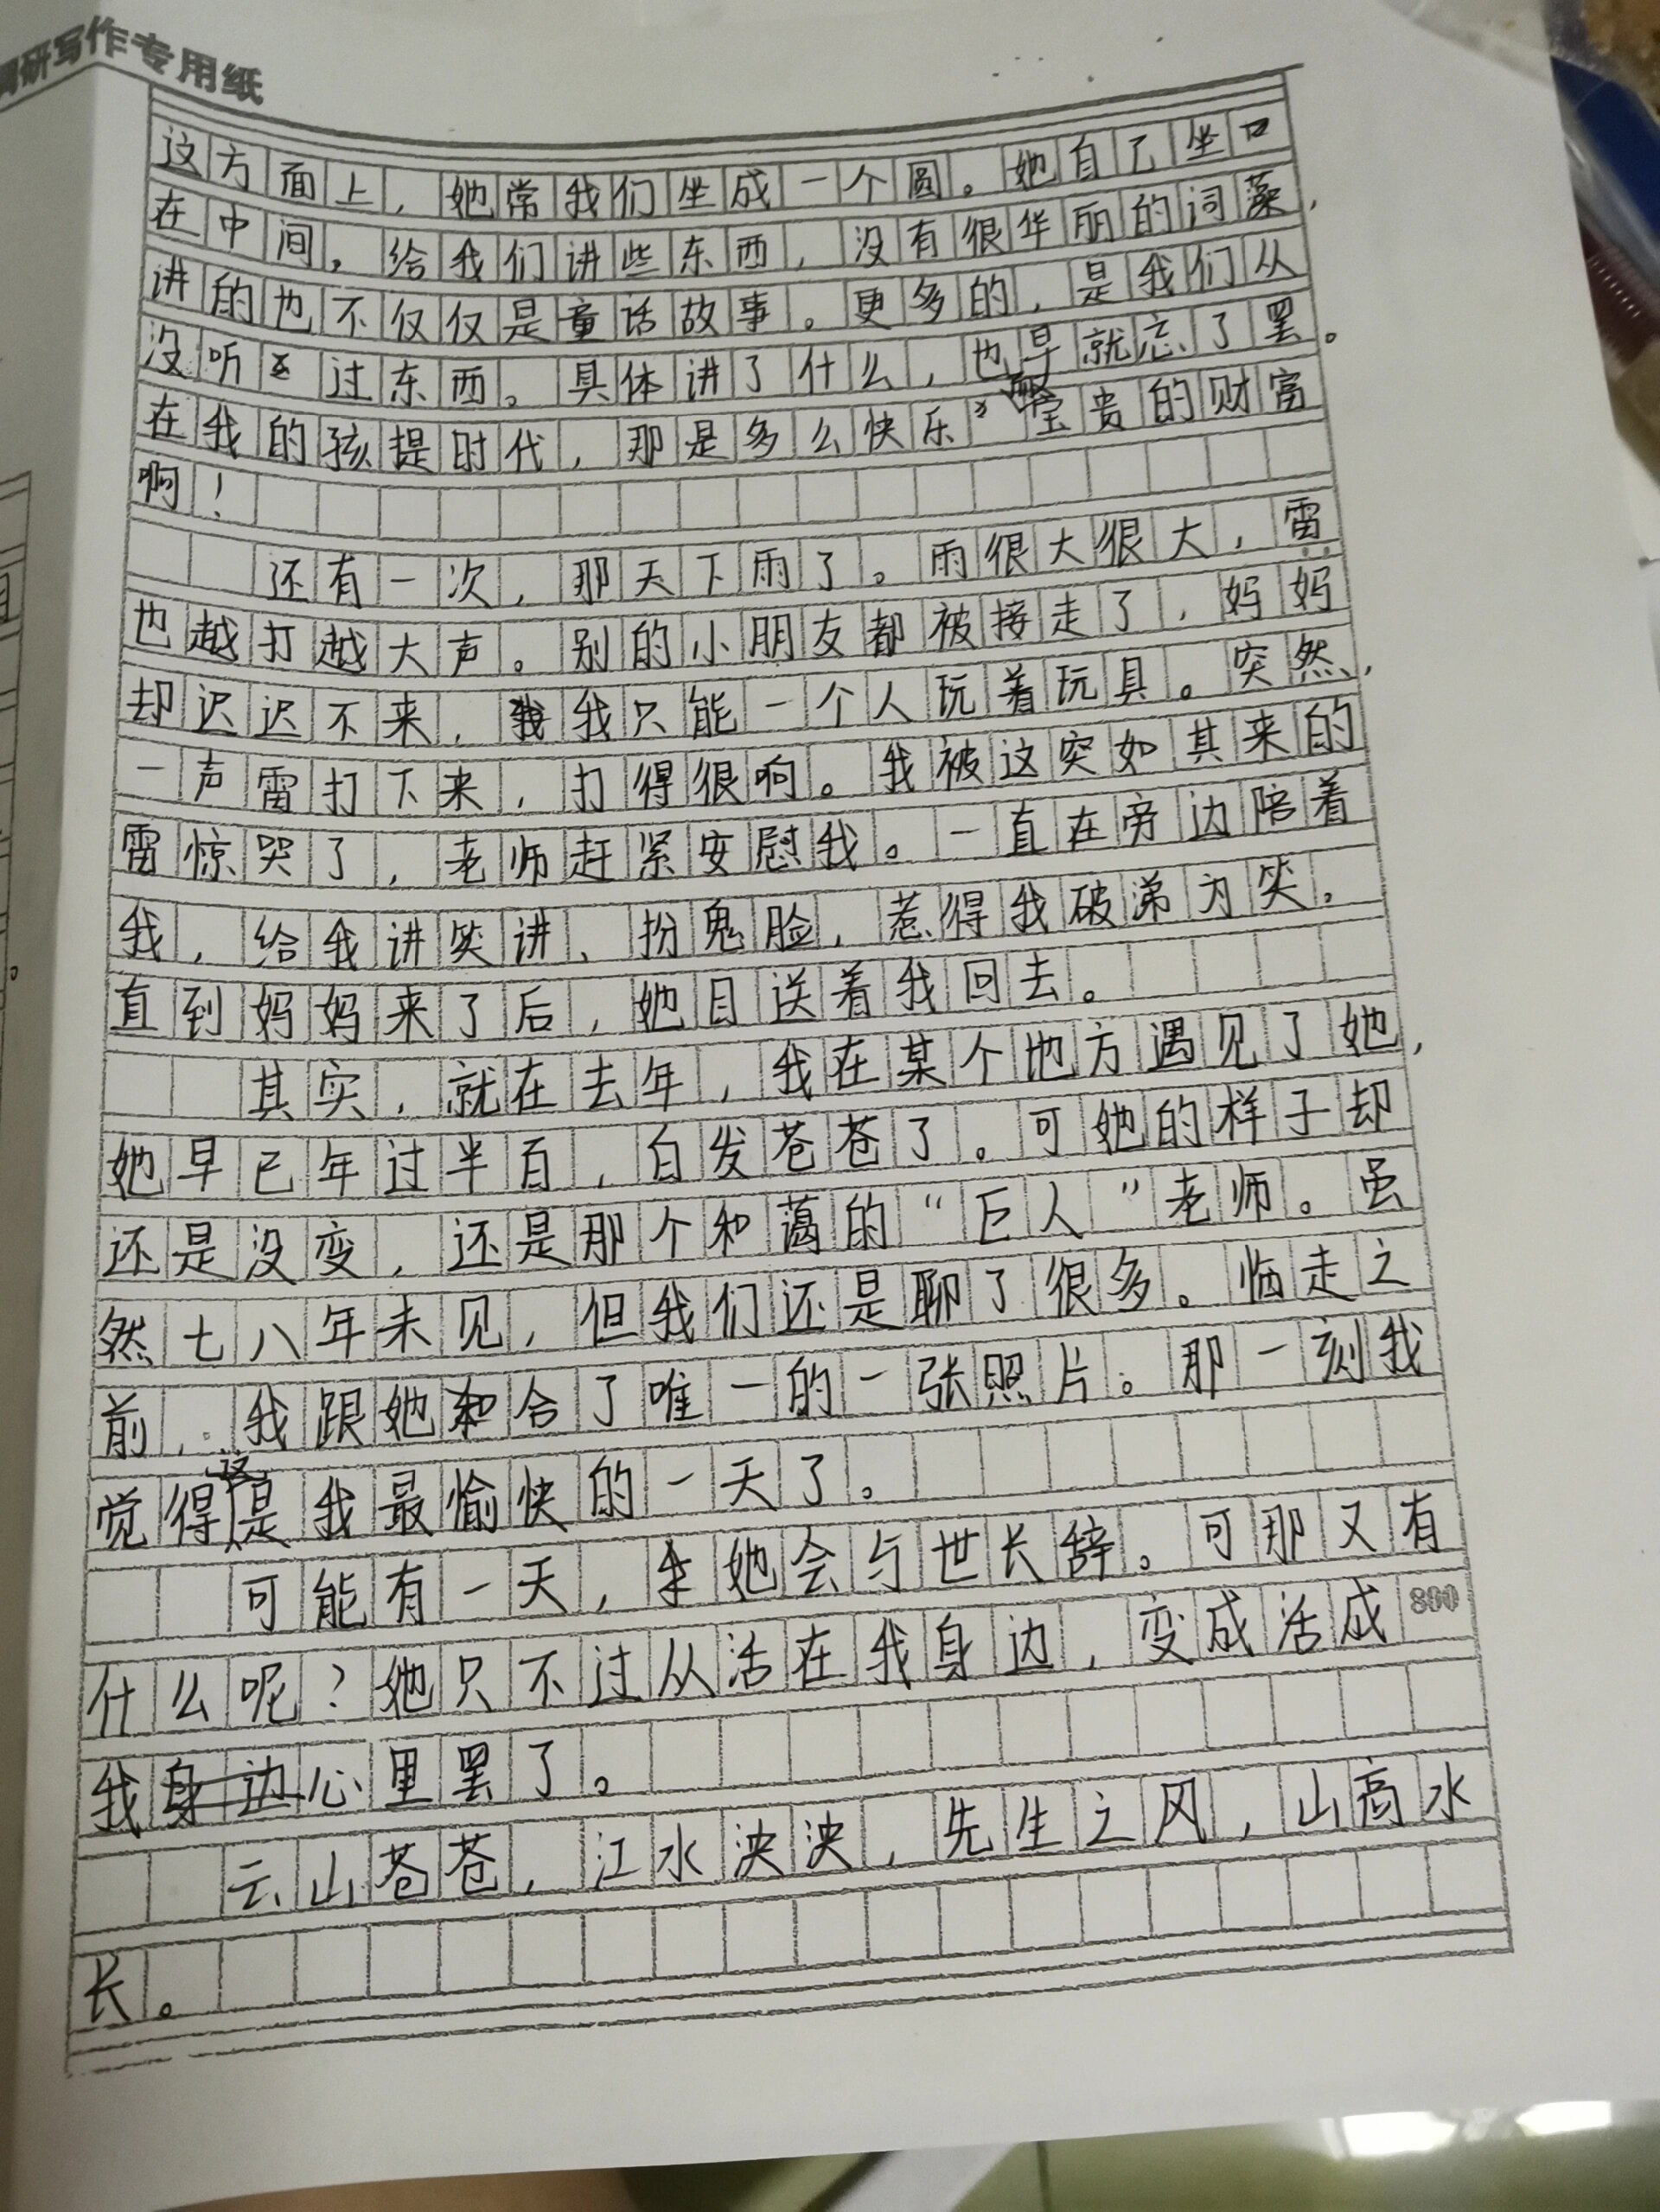 调研写作专用纸
这方面上，她常我们坐成一个圆。她自己坐
在中间，给我们讲些东西，没有很华丽的词藻，
讲的也不仅仅是童话故事。更多的，是我们从
没听过东西。具体讲了什么，也早就忘了罢。
在我的孩提时代，那是多么快乐，宝贵的财富
啊！
还有一次，那天下雨了。雨很大很大，雷
也越打越大声。别的小朋友都被接走了，妈妈
却迟迟不来，我只能一个人玩着玩具。突然，
一声雷打下来，打得很响。我被这突如其来的
雷惊哭了，老师赶紧安慰我。一直在旁边陪着
我，给我讲笑讲、扮鬼脸，惹得我破涕为笑。
直到妈妈来了后，她目送着我回去。
其实，就在去年，我在某个地方遇见了她，
她早已年过半百，白发苍苍了。可她的样子却
还是没变，还是那个和蔼的“巨人”老师。虽
然七八年未见，但我们还是聊了很多。临走之
前，我跟她合了唯一的一张照片。那一刻我
觉得这是我最愉快的一天了。
可能有一天，她会与世长辞。可那又有
什么呢？她只不过从活在我身边，变成活成
800
我心里罢了。
云山苍苍，江水泱泱，先生之风，山高水
长。